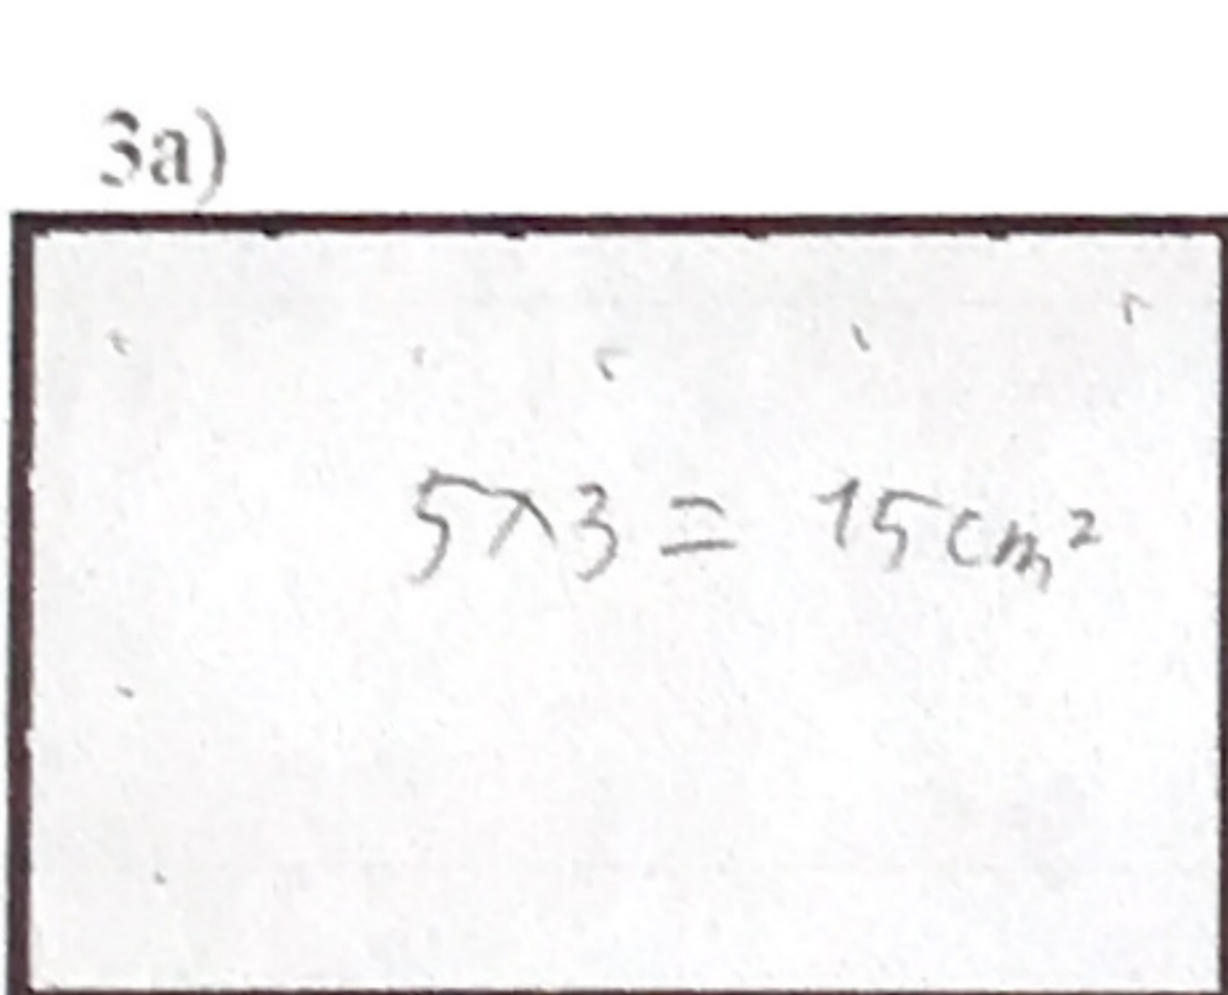 3a)
5×3 = 15cm²